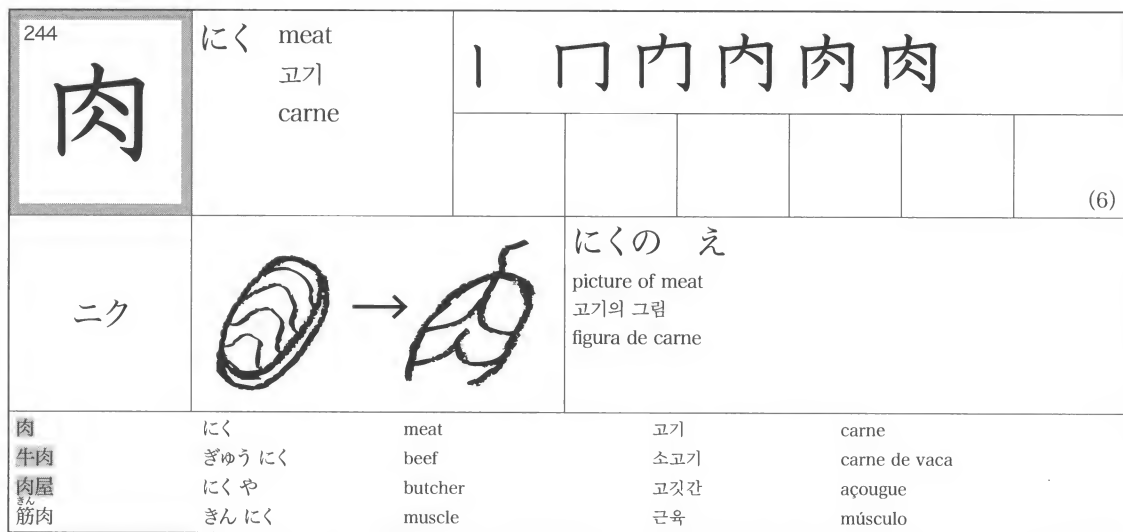 244
肉
にく meat
고기
carne
丨 冂 内 内 肉 肉
(6)
ニク
にくの え
picture of meat
고기의 그림
figura de carne
肉 にく meat 고기 carne
牛肉 ぎゅう にく beef 소고기 carne de vaca
肉屋 にく や butcher 고깃간 açougue
きん
筋肉 きん にく muscle 근육 músculo